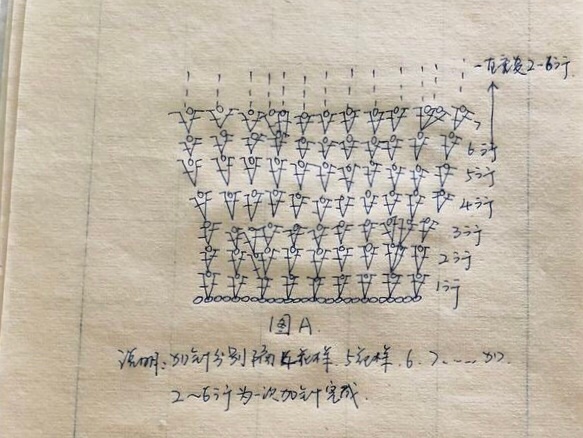 一直重复2-6行
7
6行
5行
4行
3行
2行
1行
图A.
说明:加针分别隔4花样.5花样.6.7.....加.
2~6行为一次加针完成.